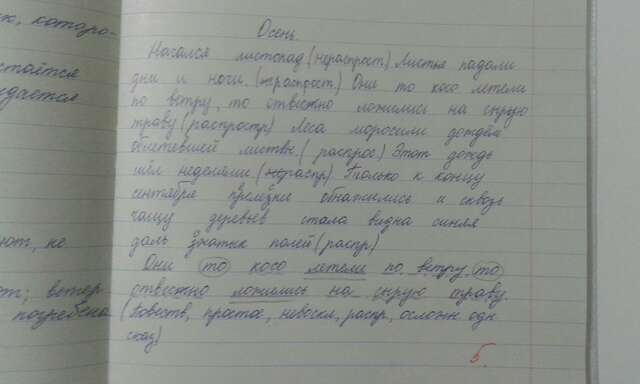 ик, которо-
стаётся
идается
ют, не
т; ветер
погребено
Осень.
Начался листопад (нераспрост) Листья падали
дни и ночи. (нераспрост.) Они то косо летели
по ветру, то отвесно ложились на сырую
траву (распростр) Леса моросили дождём
облетевшей листвы. (распрос) Этот дождь
шёл неделями. (нераспр) Только к концу
сентября перелески обнажились и сквозь
чащу деревьев стала видна синяя
даль сжатых полей (распр)
Они то косо летели по ветру, то
отвесно ложились на сырую траву.
(Повеств, простое, невоскл, распр, осложн одн
сказ)
5.